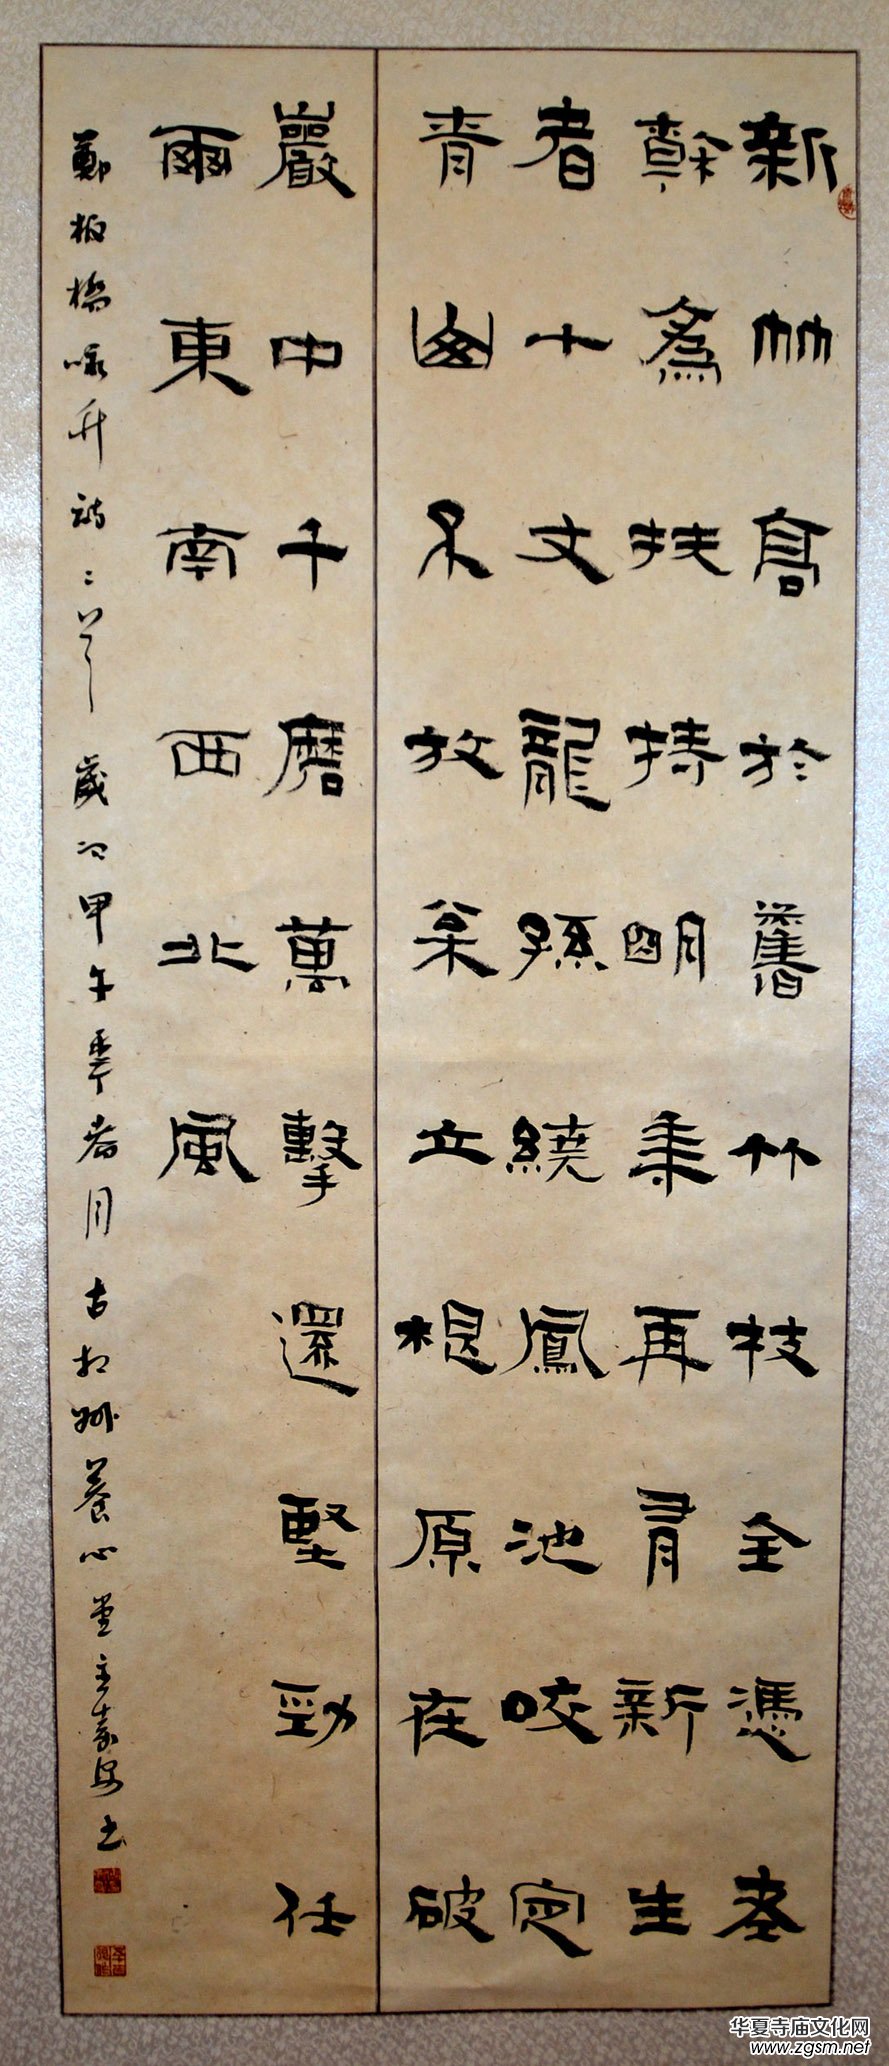 新竹高於舊竹枝全憑老
幹為扶持明年再有新生
者十丈龍孫繞鳳池咬定
青山不放枀立根原在破
巖中千磨萬擊還堅勁任
爾東南西北風
鄭板橋咏竹詩二首歲次甲午年春月古相州養心堂主书
华夏寺庙文化网
www.zgsm.net